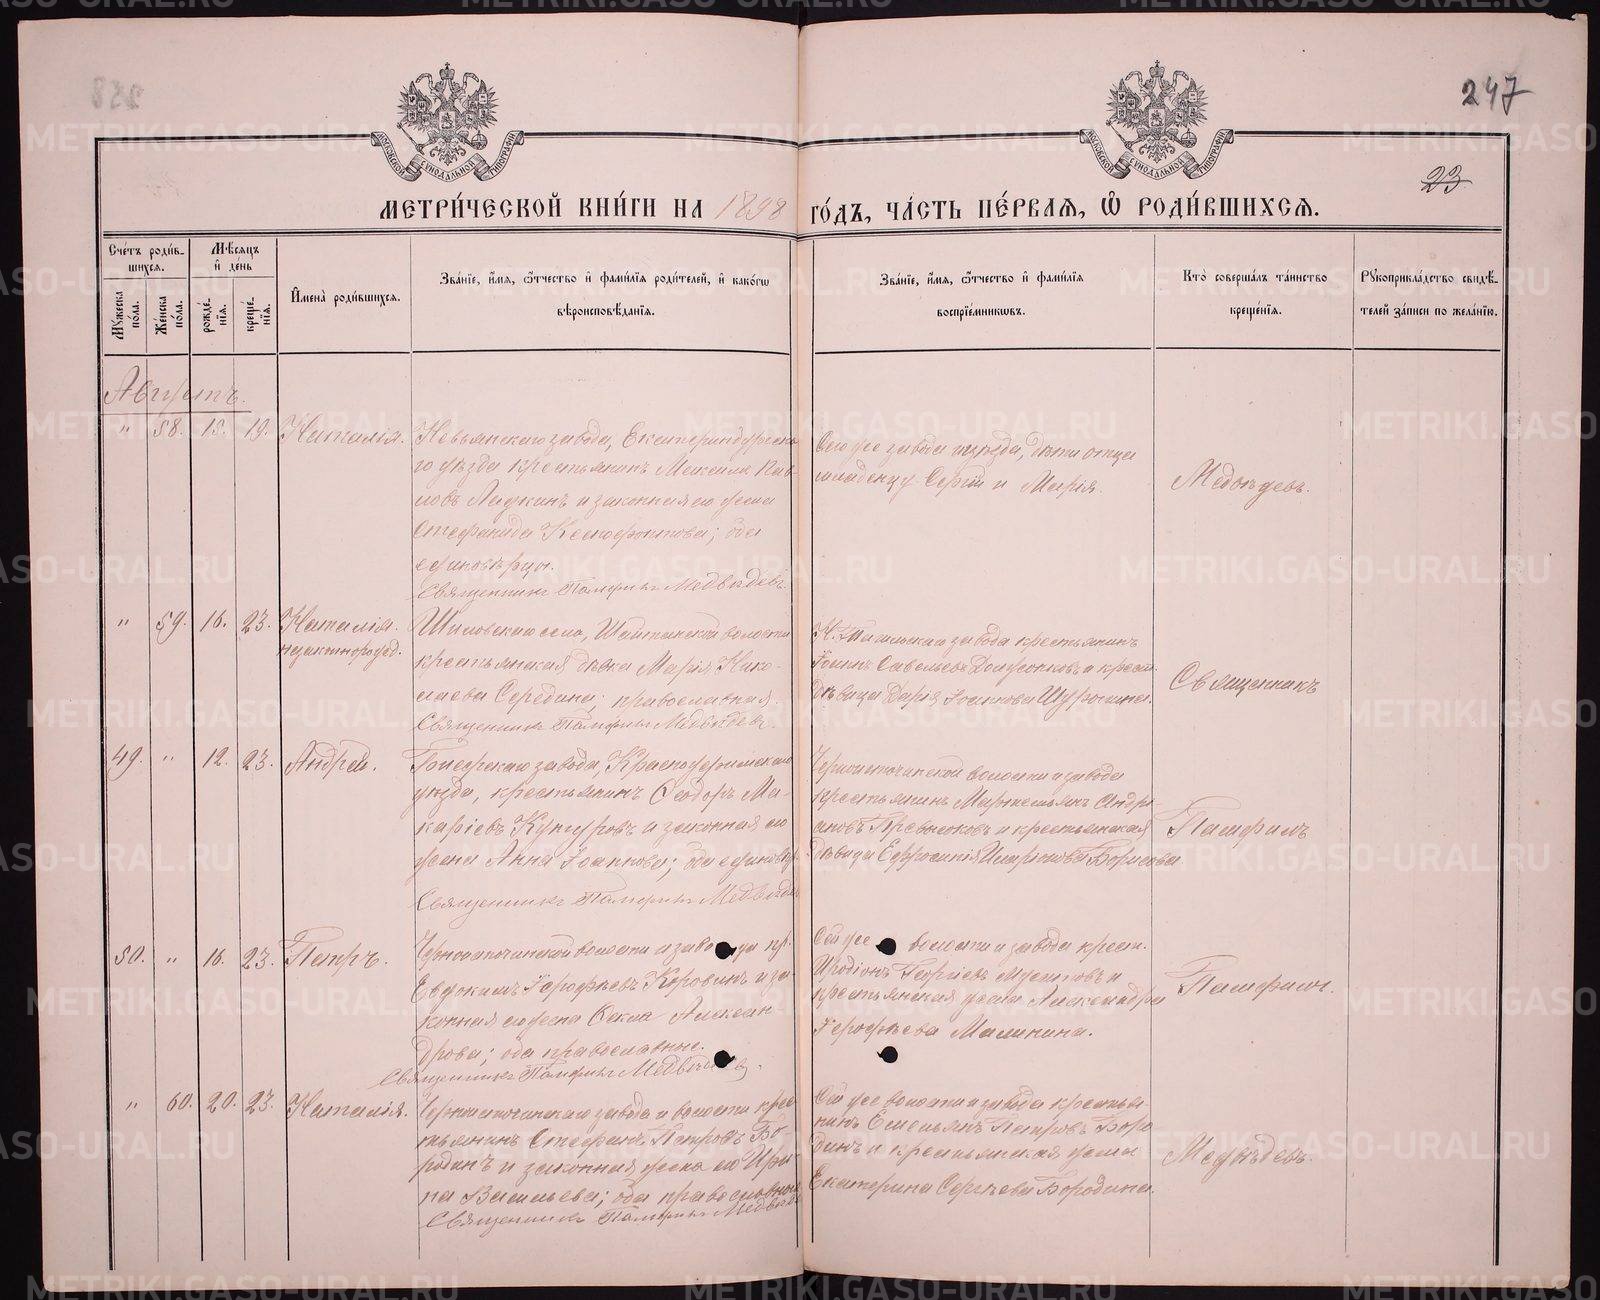 247
23
МОСКОВСКОЙ СѴНОДАЛЬНОЙ ТИПОГРАФІИ
МОСКОВСКОЙ СѴНОДАЛЬНОЙ ТИПОГРАФІИ
МЕТРИ́ЧЕСКОЙ КНИ́ГИ НА 1898 ГО́ДЪ, ЧА́СТЬ ПЕ́РВАЯ, Ѡ РОДИ́ВШИХСЯ.
Сче́тъ роди́вшихся.
Мужеска по́ла.
Же́нска по́ла.
Мѣ́сяцъ и́ де́нь
рожде́нїя.
креще́нїя.
И҆мена̀ роди́вшихся.
Зва́нїе, и҆́мя, ѻ҆́тчество и҆ фами́лїя роди́телей, и҆ како́гѡ
вѣроисповѣ́данїя.
Зва́нїе, и҆́мя, ѻ҆́тчество и҆ фами́лїя
воспрїе́мникѡвъ.
Кто̀ соверша́лъ та́инство
креще́нїя.
Рꙋкоприкла́дство свидѣ́телей за́писи по жела́нїю.
Августъ.
" 58. 15. 19. Наталія.
Невьянскаго завода, Екатеринбургска
го уѣзда крестьянинъ Михаилъ Пав
ловъ и законная его жена
Стефанида Ксенофонтова; оба
единовѣрцы.
Священникъ Памфилъ Медвѣдевъ.
Сего же завода и уѣзда, дѣти отца
младенцу Сергій и Марія.
Медвѣдевъ.
" 59. 16. 23. Наталія.
незаконорожд.
Шиловскаго села, Шайтанской волости
крестьянская дѣвка Марія Нико-
лаева Середина; православная.
Священникъ Памфилъ Медвѣдевъ.
Н. Тагильскаго завода крестьянинъ
Іоаннъ Савельевъ и крест.
дѣвица Дарія Іоаннова
Священникъ
49. " 12. 23. Андрей.
завода, Красноуфимскаго
уѣзда, крестьянинъ Ѳеодоръ Ма-
каріевъ Кунгуровъ и законная его
жена Анна Іоаннова; оба единовѣр.
Священникъ Памфилъ Медвѣдевъ
Черноисточинской волости и завода
крестьянинъ Андрі-
ановъ и крестьянская
дѣвица Ефросинія Борисова
Памфилъ
50. " 16. 23. Петръ.
Черноисточинской волости и завода кр.
Евдокимъ Ерофѣевъ Коровинъ и за-
конная его жена Ѳекла Алексан-
дрова; оба православные.
Священникъ Памфилъ Медвѣдевъ.
Сей же волости и завода крест.
Иродіонъ Георгіевъ и
крестьянская жена Александра
Ерофѣева Малинина.
Памфилъ.
" 60. 20. 23. Наталія.
Черноисточинскаго завода и волости крес
тьянинъ Стефанъ Петровъ Бо
родинъ и законная жена его Ири-
на Васильева; оба православные
Священникъ Памфилъ Медвѣдевъ
Сей же волости и завода крестья-
нинъ Емельянъ Петровъ Боро
динъ и крестьянская жена
Екатерина Сергѣева Бородина.
Медвѣдевъ.
METRIKI.GASO-URAL.RU